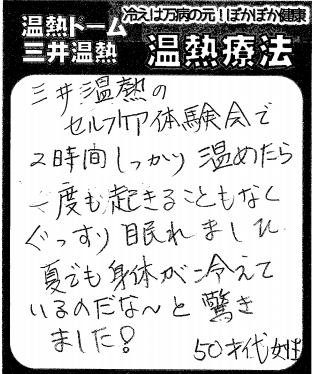 冷えは万病の元！ぽかぽか健康
温熱ドーム
三井温熱
温熱療法
三井温熱の
セルフケア体験会で
2時間しっかり温めたら
一度も起きることもなく
ぐっすり眠れました
夏でも身体が冷えて
いるのだな〜と驚き
ました！
50才代女性